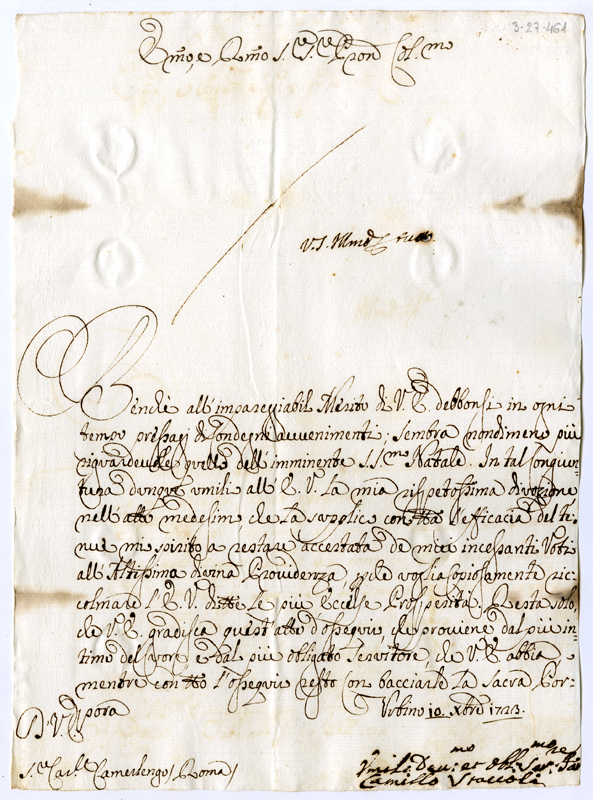 3-27-461
Em̃o, e Rm̃o S.r S.r Pron Col.mo
Benche all'impareggiabil Merito di V. E. debbonsi in ogni
tempo pressagj di condegni avvenimenti; sembra nondimeno più
riguardevole quello dell'imminente S.S.mo Natale. In tal congiun-
tura dunque umilio all'E. V. la mia rispetosissima divozione
nell'atto medesimo che la supplico con tutta l'efficacia del te-
nue mio spirito a restare accertata de miei incessanti Voti
all'Altissima divina Providenza, perche voglia copiosamente ric-
colmare l'E. V. di tutte le più eccelse Prosperità. Resta solo,
che V. E. gradisca quest'atto d'ossequio, che proviene dal più in-
timo del cuore e dal più obligato Servitore, che V. E. abbia
mentre con tutto l'ossequio resto con bacciarle la Sacra Por-
pora Urbino 10. Xbre 1723.
D. V. E.
S.r Car.le Camerlengo / Roma /
Umil.o Dev.mo et obb.mo Ser.re
Camillo Staccoli